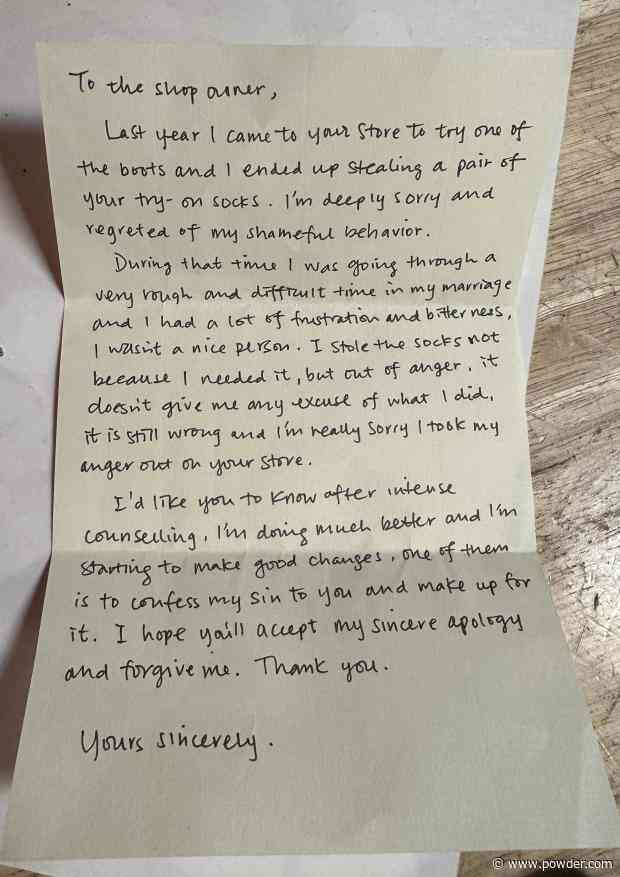 To the shop owner,
Last year I came to your store to try one of
the boots and I ended up stealing a pair of
your try-on socks. I'm deeply sorry and
regreted of my shameful behavior.
During that time I was going through a
very rough and difficult time in my marriage
and I had a lot of frustration and bitterness,
I wasn't a nice person. I stole the socks not
because I needed it, but out of anger, it
doesn't give me any excuse of what I did,
it is still wrong and I'm really sorry I took my
anger out on your store.
I'd like you to know after intense
counselling, I'm doing much better and I'm
starting to make good changes, one of them
is to confess my sin to you and make up for
it. I hope you'll accept my sincere apology
and forgive me. Thank you.
Yours sincerely.
© www.powder.com